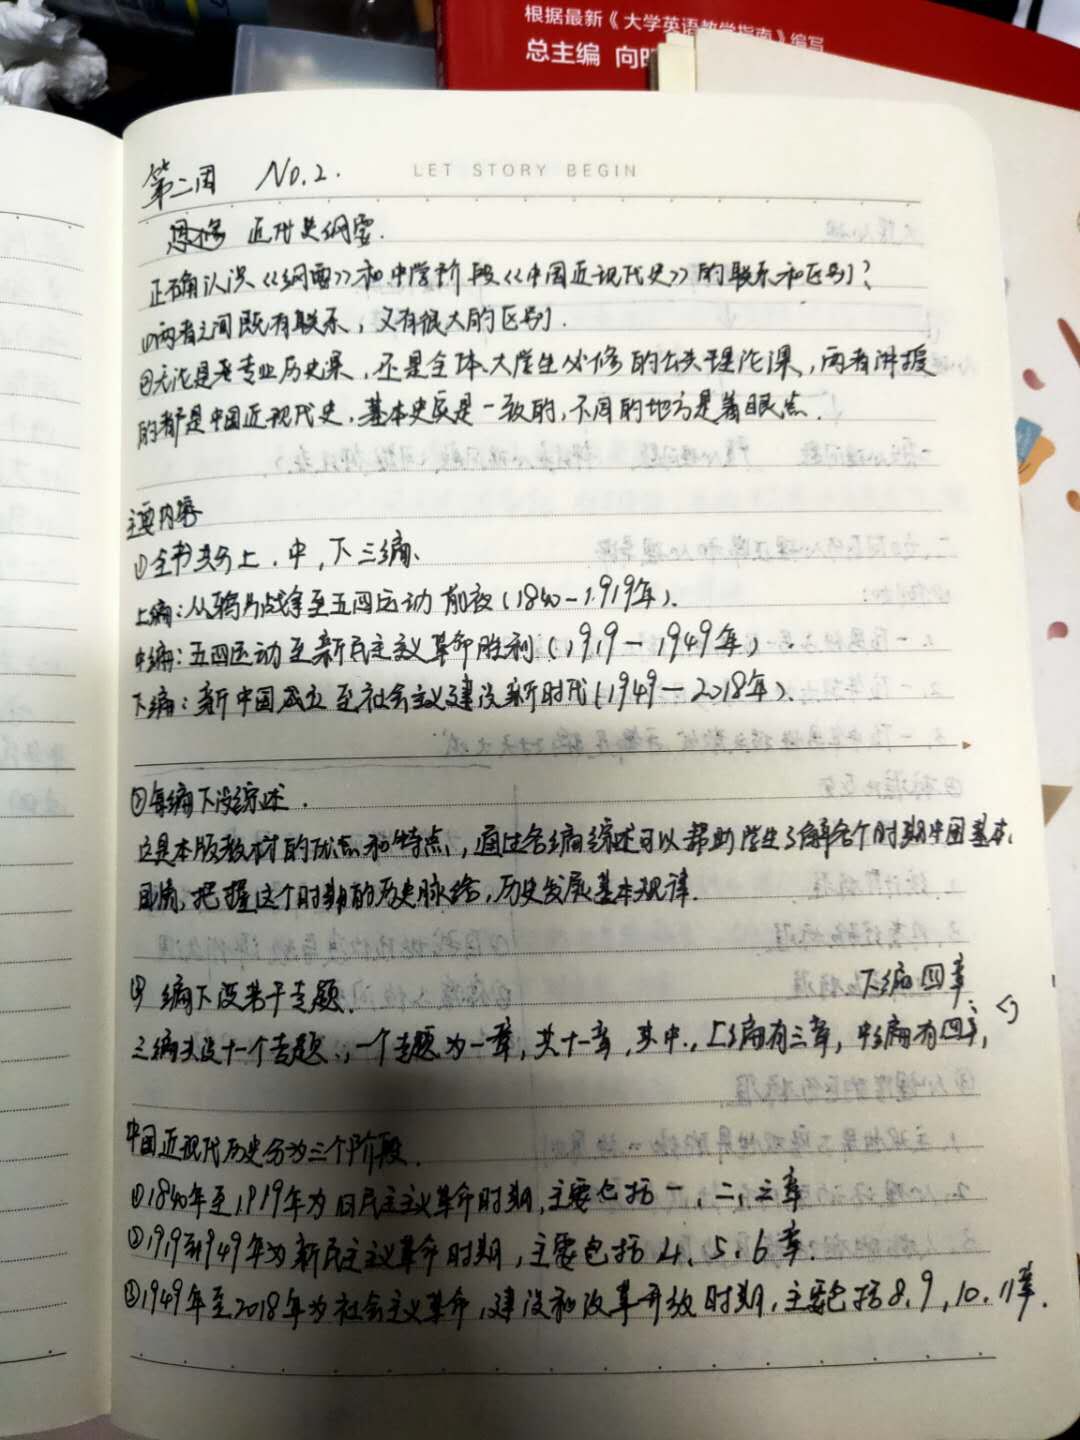 根据最新《大学英语教学指南》编写
总主编 向
LET STORY BEGIN
第二周 No.2.
思修 近代史纲要.
正确认识《纲要》和中学阶段《中国近现代史》的联系和区别?
①两者之间既有联系,又有很大的区别.
②无论是老专业历史课,还是全体大学生必修的公共理论课,两者讲授
的都是中国近现代史,基本史实是一致的,不同的地方是着眼点.
主要内容
①全书共分上.中,下三编、
上编:从鸦片战争至五四运动前夜(1840-1919年).
中编:五四运动至新民主主义革命胜利(1919-1949年).
下编:新中国成立至社会主义建设新时代(1949-2018年).
②每编下设综述.
这是本版教材的优点和特点,通过各编综述可以帮助学生了解各个时期中国基本
国情,把握这个时期的历史脉络,历史发展基本规律.
编下设若干专题.
下编四章
三编共设十一个专题,一个专题为一章,共十一章,其中.上编有三章,中编有四章;
中国近现代历史分为三个阶段.
①1840年至1919年为旧民主主义革命时期,主要包括一,二,三章
②1919到1949年为新民主主义革命时期,主要包括4、5、6章.
③1949年至2018年为社会主义革命,建设和改革开放时期,主要包括8、9,10、11章.